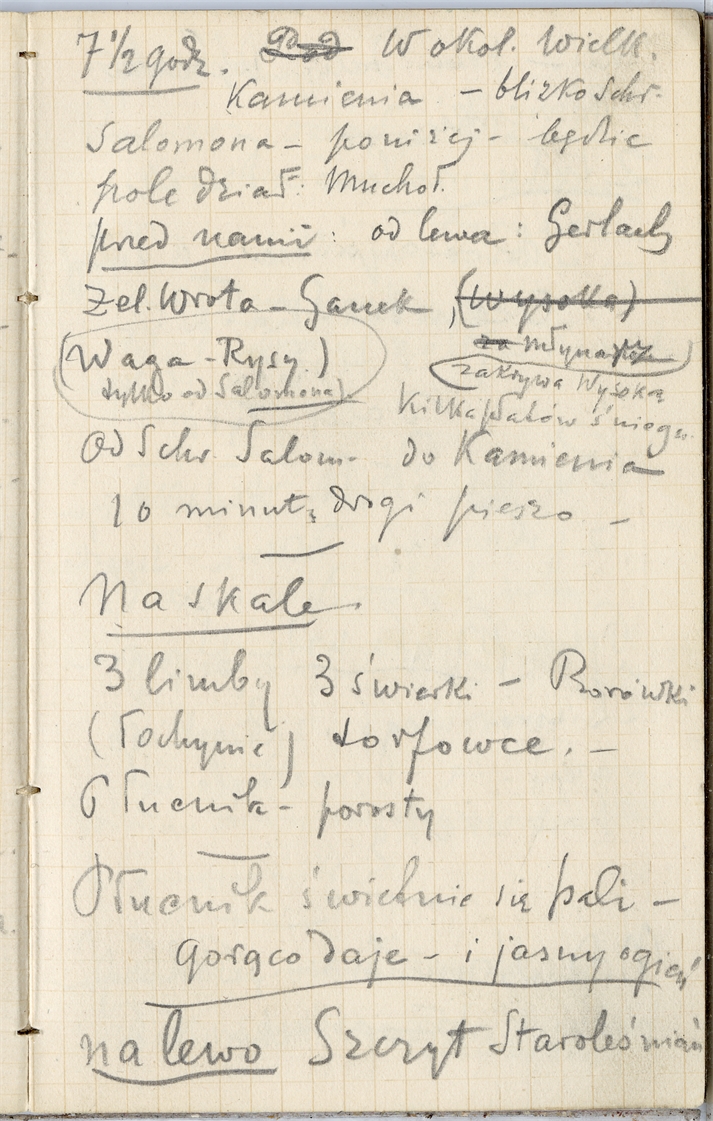 7 1/2 godz. Pod W okol. Wielk.
Kamienia – blizko Schr.
Salomona – poniżej – będzie
pole dział: Muchoł.
przed nami: od lewa: Gerlach
Żel. Wrota – Ganek, (Wysoka)
(Waga – Rysy.)
za Młynarz
tylko od Salomona).
zakrywa Wysoką
kilka płatów śniegu.
Od Schr. Salom. do Kamienia
10 minut drogi pieszo –
Na skale.
3 limby 3 świerki – Borówki
(Łochynie) torfowce. –
Płucnik – porosty
Płucnik świetnie się pali –
gorąco daje – i jasny ogień
na lewo Szczyt Staroleśniań